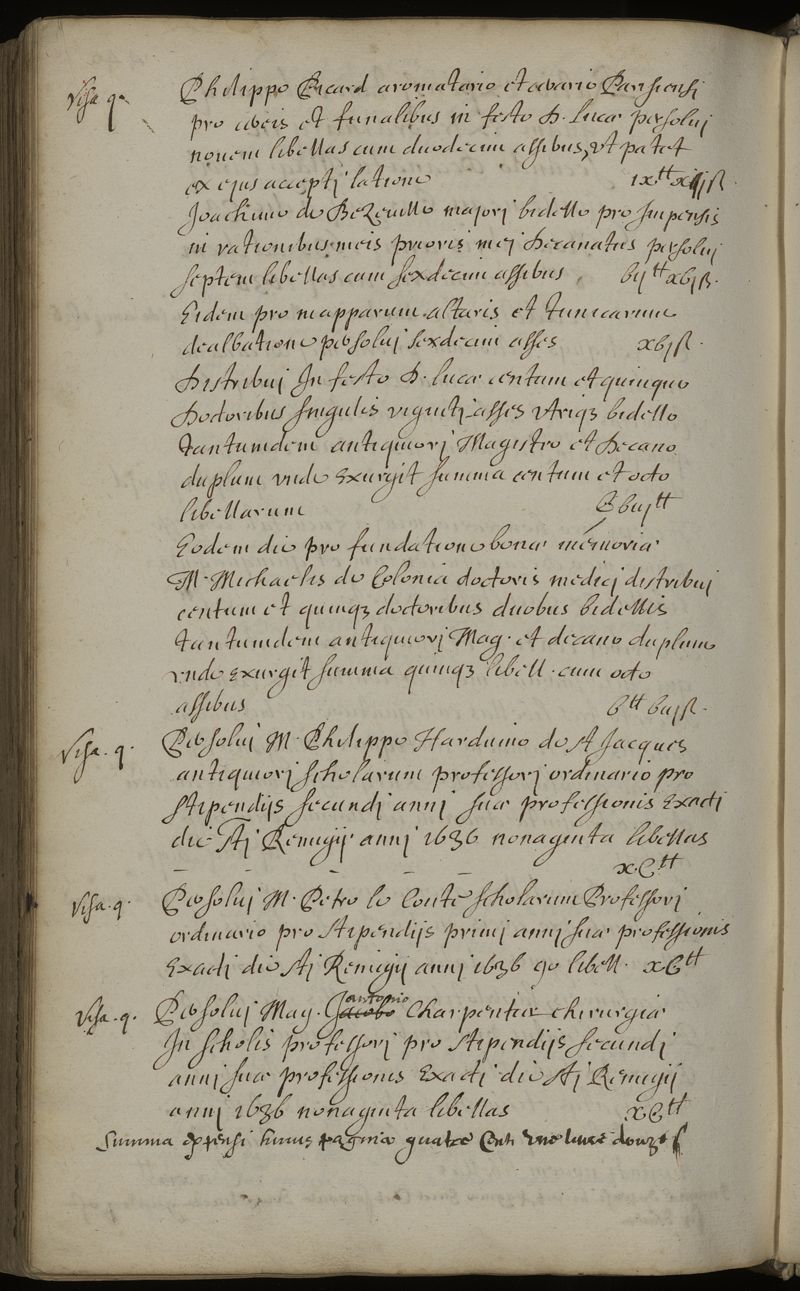 Visa q.
Philippo Picard aromatario et cerario Parisiensi
pro cereis et funalibus in festo D. Lucæ persolui
novem libellas cum duodecim assibus, vt patet
ex ejus acceptilatione ixtt xijß.
Joachimo de Bezeville majorj bidello pro impensis
in rationibus meis prioris mej Decanatus persolui
septem libellas cum sexdecim assibus, bijtt xbjß.
Eidem pro mapparum altaris et tunicarum
dealbatione persoluj sexdecim asses xbjß.
Distribuj In festo D. lucæ centum et quinque
Doctoribus singulis vigintj asses vtriqz bidello
tantumdem antiquiorj Magistro et Decano
duplum vnde Exurgit summa centum et octo
libellarum Cbiijtt
Eodem die pro fundatione bonæ memoriæ
M. Michaelis de Colonia doctoris medicj distribuj
centum et quinqz doctoribus duobus bidellis
tantumdem antiquiorj Mag. et decano duplum
vnde Exurgit summa quinqz libell. cum octo
assibus btt biijß.
Visa. q.
Persoluj M. Philippo Harduino de St Jacques
antiquiorj scholarum professorj ordinario pro
stipendijs secundj annj suæ professionis Exactj
die Stj Remigij annj 1636 nonaginta libellas
x.C.tt
Visa. q.
Persoluj M. Petro le Conte scholarum Professorj
ordinario pro stipendijs primj annj suæ professionis
Exactj die Stj Remigij annj 1636 90 libell. xCtt
Visa. q.
Persoluj Mag. Jacobo antonio Charpentier chirurgiæ
In scholis professorj pro stipendijs secundj
annj suæ professionis Exactj die Stj Remigij
annj 1636 nonaginta libellas xCtt
Summa expensi huius paginæ quatre Cent vne liure douze s